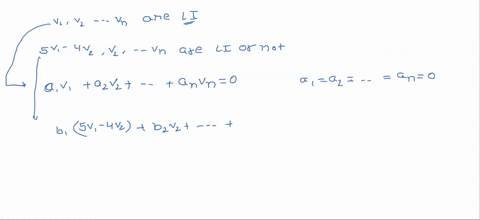 v₁, v₂ ... vₙ are LI
5v₁-4v₂, v₂, ... vₙ are LI or not
a₁v₁ + a₂v₂ + ... + aₙvₙ = 0 a₁ = a₂ = ... = aₙ = 0
b₁ (5v₁-4v₂) + b₂v₂ + ... +